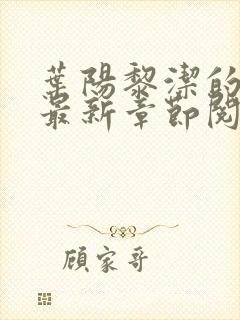 葉陽黎潔的
最新章節閱
顧家哥